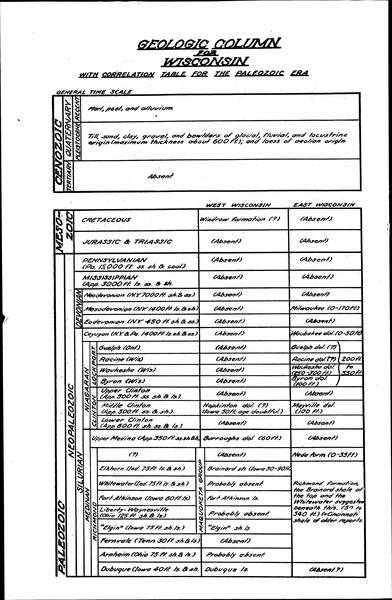 GEOLOGIC COLUMN
FOR
WISCONSIN
WITH CORRELATION TABLE FOR THE PALEOZOIC ERA
GENERAL TIME SCALE
CENOZOIC
TERTIARY QUATERNARY
PLEISTOCENE RECENT
Marl, peat, and alluvium
Till, sand, clay, gravel, and bowlders of glacial, fluvial, and lacustrine
origin (maximum thickness about 600 ft.); and loess of aeolian origin.
Absent
WEST WISCONSIN EAST WISCONSIN
MESO-
ZOIC
CRETACEOUS Windrow formation (?) (Absent)
JURASSIC & TRIASSIC (Absent) (Absent)
PALEOZOIC
NEOPALEOZOIC
PENNSYLVANIAN
(Pa. 15,000 ft. ss. sh & coal) (Absent) (Absent)
MISSISSIPPIAN
(App. 3000 ft. ls. ss. & sh. (Absent) (Absent)
DEVONIAN
Neodevonian (N.Y. 7000 ft. sh & ss) (Absent) (Absent)
Mesodevonian (N.Y. 1400 ft. ls & sh) (Absent) Milwaukee (0-170 ft)
Eodevonian (N.Y. 450 ft sh & ss) (Absent) (Absent)
SILURIAN
Cayugan (N.Y. & Pa. 1400 ft ls. sh) (Absent) Waubakee dol. (0-50 ft)
NIAGARAN
LOCKPORT
Guelph (Ont) (Absent) Guelph dol. (?)
Racine (Wis) (Absent) Racine dol (?) 200 ft
Waukesha (Wis) (Absent) Waukesha dol. to
Byron (Wis) (Absent) Byron dol. 550 ft
(100 ft.)
CLINTON
Upper Clinton
(App 300 ft ss. sh & ls) (Absent) (Absent)
Middle Clinton
(App 300 ft ss. & sh.) Hopkinton dol. (?)
(Iowa 50 ft; age doubtful) Mayville dol.
(100 ft.)
Lower Clinton
(App 600 ft sh. ss & ls) (Absent) (Absent)
MEDINAN
Upper Medina (App 350 ft ss sh &) Burroughs dol. (60 ft) (Absent)
RICHMOND
MAQUOKETA GROUP
(?) (Absent) Neda form (0-35 ft)
Elkhorn (Ind. 75 ft ls. & sh) Brainard sh
Whitewater (Ind. 75 ft ls. & sh) Probably absent
Fort Atkinson (Iowa 60 ft ls) Fort Atkinson ls.
Liberty-Waynesville
(Ohio 125 ft sh & ls) Probably absent
"Elgin" (Iowa 75 ft sh ls. "Elgin" sh ls
Fernvale (Tenn 30 ft sh & ls) (Absent)
Arnheim (Ohio 75 ft sh & ls) Probably absent
Dubuque (Iowa 40 ft. ls & sh) Dubuque ls. (Absent?)
Richmond formation,
the Brainard shale at
the top and the
Whitewater suggested
beneath this.
540 ft) Cincinnati
shale of older reports.